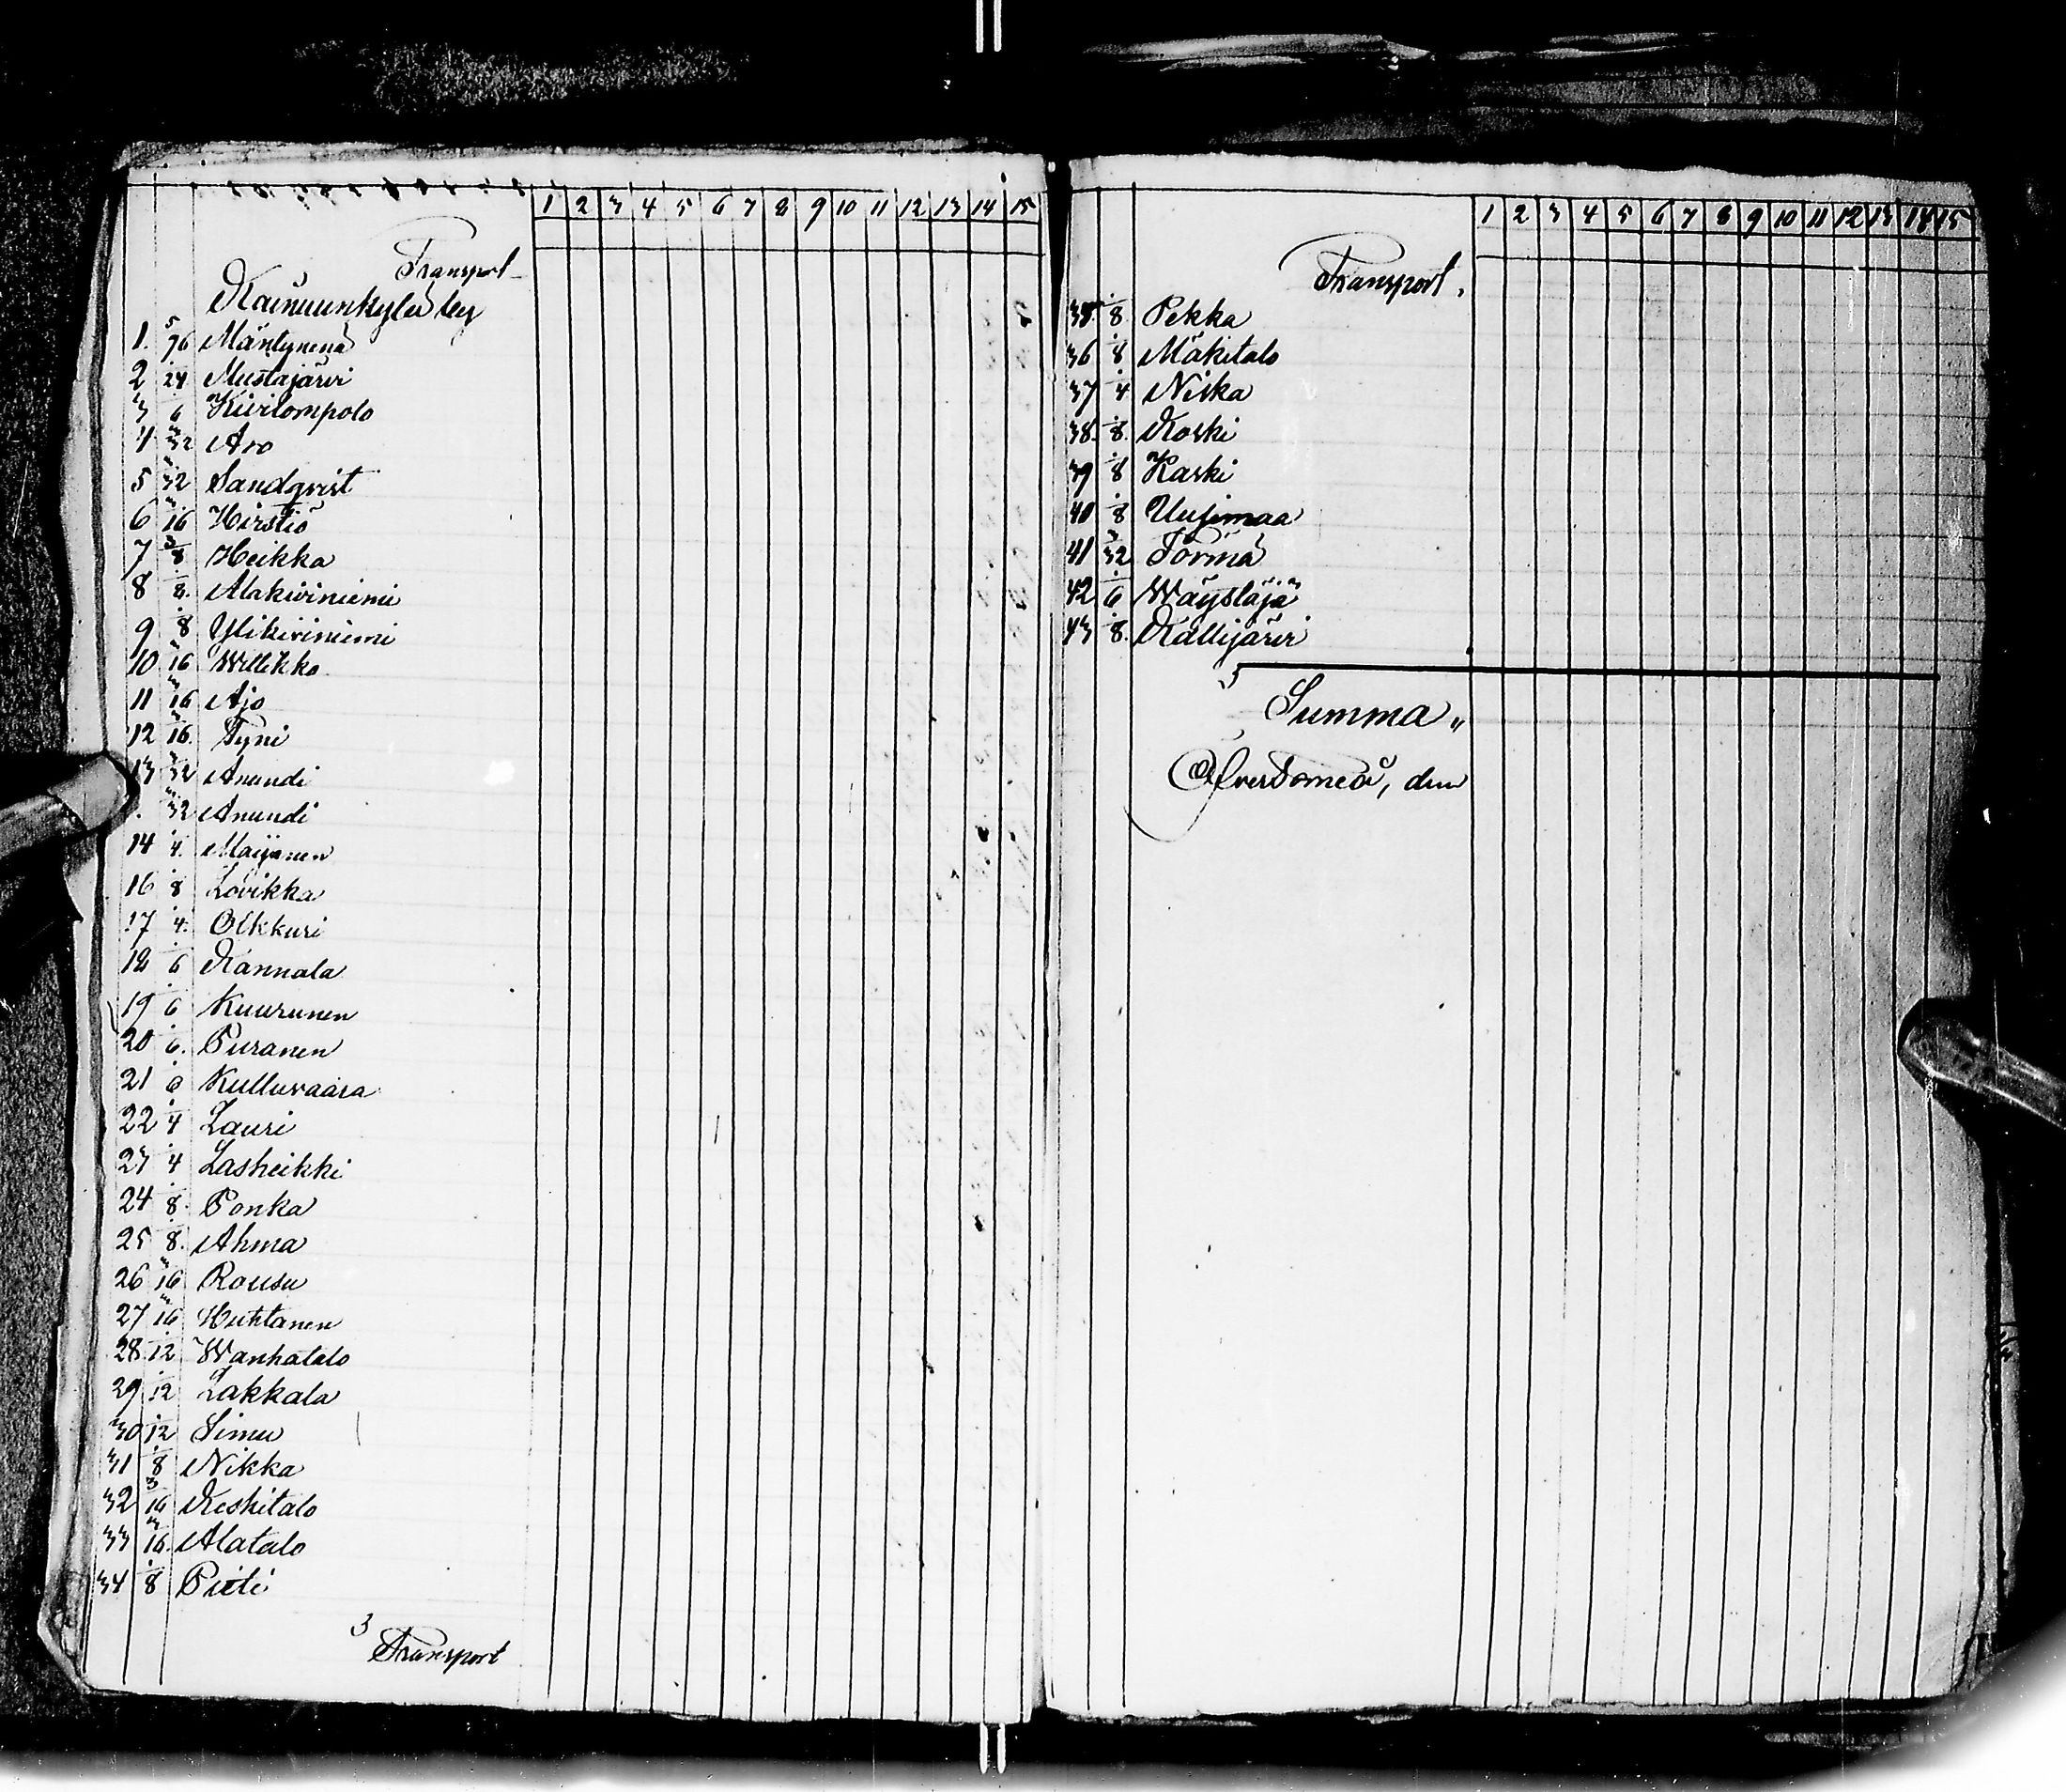 1 2 3 4 5 6 7 8 9 10 11 12 13 14 15
Transport
Kainuunkylä by
1. 5/96 Mäntynenä
2 1/24 Mustajärvi
3 1/6 Kivilompolo
4 3/32 Aro
5 3/32 Sandqvist
6 3/16 Hirstiö
7 3/8 Heikka
8 1/8. Alakiviniemi
9 1/8 Ylikiviniemi
10 3/16 Willikka
11 3/16 Ajo
12 3/16. Tyni
13 3/32 Anundi
3/32 Anundi
14 1/4. Maijanen
16 1/8 Lovikka
17 1/4. Olkkuri
18 1/6 Kannala
19 1/6 Kuurunen
20 1/6. Puranen
21 1/6 Kulluvaara
22 1/4 Lauri
23 1/4 Lasheikki
24 1/8. Ponka
25 1/8. Ahma
26 3/16 Rousu
27 3/16 Huhtanen
28. 1/12 Wanhatalo
29 1/12 Lakkala
30 1/12 Simu
31 1/8 Nikka
32 3/16 Keskitalo
33 3/16. Alatalo
34 1/8 Pieti
Transport
1 2 3 4 5 6 7 8 9 10 11 12 13 14 15
Transport.
35. 1/8 Pekka
36 1/8 Mäkitalo
37 1/4 Niska
38. 1/8. Koski
39 1/8 Kaski
40 1/8 Uusimaa
41 3/32 Törmä
42 1/6 Wäystäjä
43 1/8. Kallijärvi
Summa „
ÖfverTorneå, den